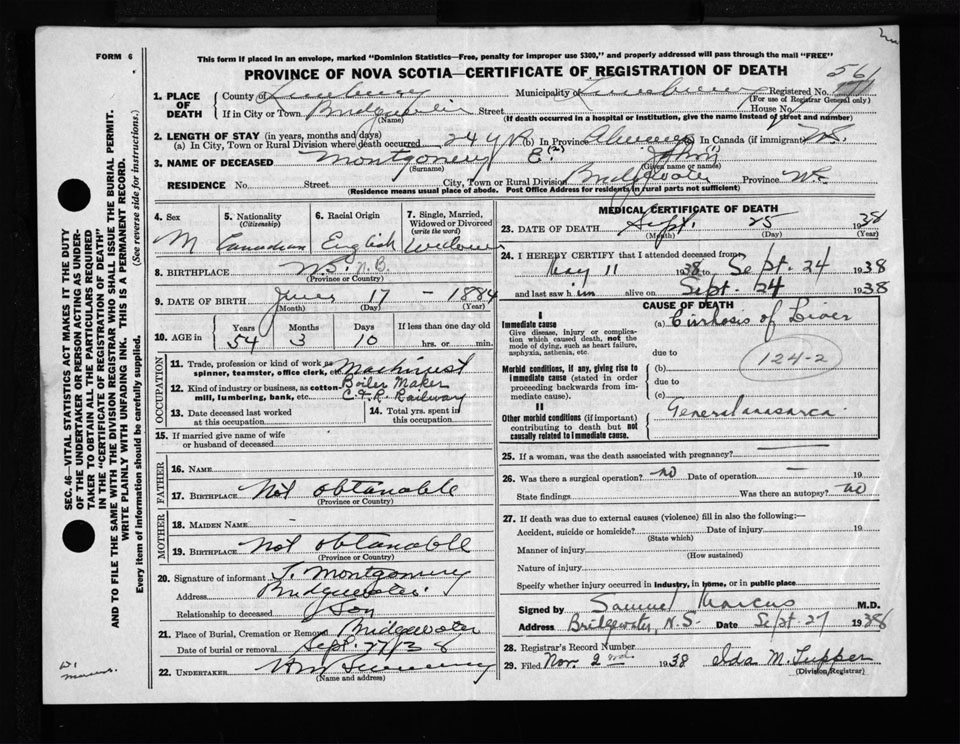 FORM 6
This form if placed in an envelope, marked "Dominion Statistics—Free, penalty for improper use $300," and properly addressed will pass through the mail "FREE"
PROVINCE OF NOVA SCOTIA—CERTIFICATE OF REGISTRATION OF DEATH
561
1. PLACE OF DEATH
County of Lunenburg Municipality of Lunenburg Registered No.
(For use of Registrar General only)
If in City or Town Bridgewater Street House No.
(Name) (If death occurred in a hospital or institution, give the name instead of street and number)
2. LENGTH OF STAY (in years, months and days)
(a) In City, Town or Rural Division where death occurred 24 yr (b) In Province Always In Canada (if immigrant)
3. NAME OF DECEASED Montgomery E. (2) John (1)
(Surname) (Given name or names)
RESIDENCE No. Street City, Town or Rural Division Bridgewater Province N.S.
(Residence means usual place of abode. Post Office Address for residents in rural parts not sufficient)
4. Sex
M
5. Nationality (Citizenship)
Canadian
6. Racial Origin
English
7. Single, Married, Widowed or Divorced (write the word)
Widower
8. BIRTHPLACE N.S. N.B.
(Province or Country)
9. DATE OF BIRTH June 17 - 1884
(Month) (Day) (Year)
10. AGE in Years Months Days If less than one day old
54 3 10 hrs. or min.
OCCUPATION
11. Trade, profession or kind of work as spinner, teamster, office clerk, etc. Machinist
12. Kind of industry or business, as cotton mill, lumbering, bank, etc. Boiler Maker
Railway
13. Date deceased last worked at this occupation
14. Total yrs. spent in this occupation
15. If married give name of wife or husband of deceased
FATHER
16. NAME
17. BIRTHPLACE Not obtanable
(Province or Country)
MOTHER
18. MAIDEN NAME -
19. BIRTHPLACE Not obtanable
(Province or Country)
20. Signature of informant Montgomery
Address Bridgewater
Relationship to deceased Son
21. Place of Burial, Cremation or Removal Bridgewater
Date of burial or removal Sept. 27/38
22. UNDERTAKER
(Name and address)
MEDICAL CERTIFICATE OF DEATH
23. DATE OF DEATH Sept. 25 1938
(Month) (Day) (Year)
24. I HEREBY CERTIFY that I attended deceased from
May 11 1938 to Sept. 24 1938
and last saw him alive on Sept. 24 1938
CAUSE OF DEATH
I
Immediate cause
Give disease, injury or complication which caused death, not the mode of dying, such as heart failure, asphyxia, asthenia, etc.
(a) Cirrhosis of Liver
due to
124-2
Morbid conditions, if any, giving rise to immediate cause (stated in order proceeding backwards from immediate cause).
(b)
due to
(c)
II
Other morbid conditions (if important) contributing to death but not causally related to immediate cause.
General anasarca
25. If a woman, was the death associated with pregnancy?
26. Was there a surgical operation? no Date of operation 19
State findings Was there an autopsy? no
27. If death was due to external causes (violence) fill in also the following:—
Accident, suicide or homicide? Date of injury 19
(State which)
Manner of injury
(How sustained)
Nature of injury
Specify whether injury occurred in industry, in home, or in public place
Signed by Samuel Marcus M.D.
Address Bridgewater, N.S. Date Sept. 27 1938
28. Registrar's Record Number
29. Filed Nov. 2nd 1938 Ida M. Tupper
(Division Registrar)
SEC. 46—VITAL STATISTICS ACT MAKES IT THE DUTY
OF THE UNDERTAKER OR PERSON ACTING AS UNDER-
TAKER TO OBTAIN ALL THE PARTICULARS REQUIRED
IN THE "CERTIFICATE OF REGISTRATION OF DEATH"
AND TO FILE THE SAME WITH THE DIVISION REGISTRAR WHO SHALL ISSUE THE BURIAL PERMIT.
WRITE PLAINLY WITH UNFADING INK. THIS IS A PERMANENT RECORD.
Every item of information should be carefully supplied. (See reverse side for instructions.)